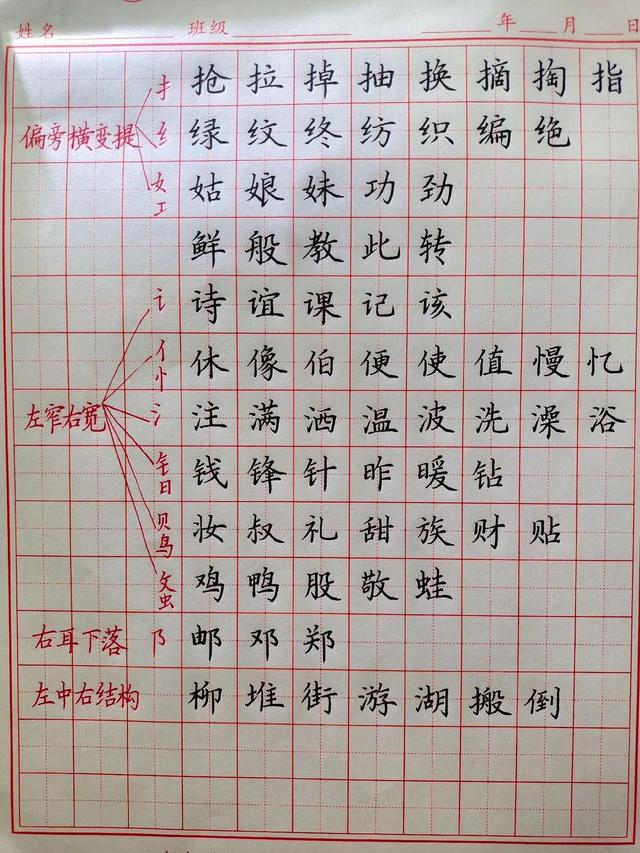 姓名 班级 年 月 日
扌 抢 拉 掉 抽 换 摘 掏 指
偏旁横变提 纟 绿 纹 终 纺 织 编 绝
女 工 姑 娘 妹 功 劲
鲜 般 教 此 转
讠 诗 谊 课 记 该
亻 忄 休 像 伯 便 使 值 慢 忆
左窄右宽 氵 注 满 洒 温 波 洗 澡 浴
钅 日 钱 锋 针 昨 暖 钻
贝 鸟 妆 叔 礼 甜 族 财 贴
文 虫 鸡 鸭 股 敬 蛙
右耳下落 阝 邮 邓 郑
左中右结构 柳 堆 街 游 湖 搬 倒